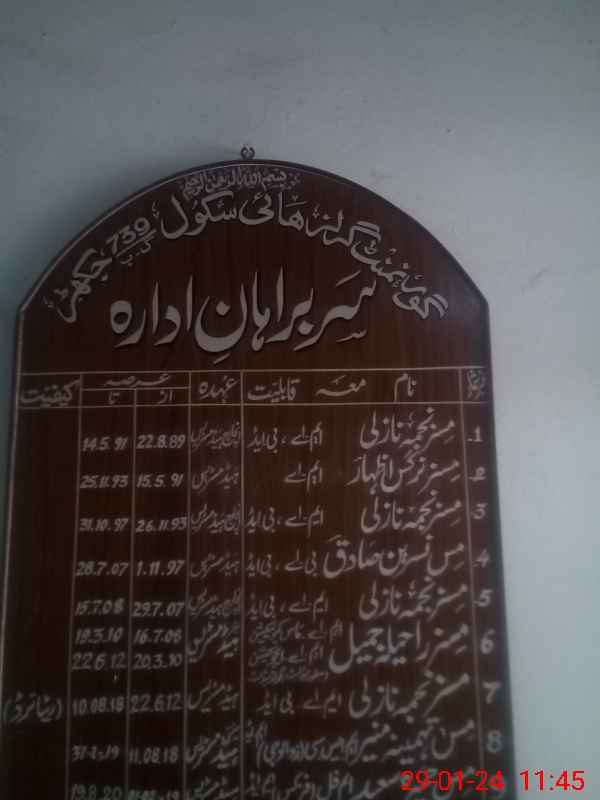 بسم اللہ الرحمٰن الرحیم
گورنمنٹ گرلز ھائی سکول 739 گ ب جکھڑ
سربراہانِ ادارہ
نام معہ قابلیت عہدہ عرصہ کیفیت
از تا
1. مسز نجمہ نازلی ایم اے ، بی ایڈ انچارج ہیڈمسٹریس 22.8.89 14.5.91
2. مسز نرگس اظہار ایم اے ہیڈمسٹریس 15.5.91 25.11.93
3. مسز نجمہ نازلی ایم اے ، بی ایڈ انچارج ہیڈمسٹریس 26.11.93 31.10.97
4. مس نسرین صادق بی اے ، بی ایڈ ہیڈمسٹریس 1.11.97 28.7.07
5. مسز نجمہ نازلی ایم اے ، بی ایڈ انچارج ہیڈمسٹریس 29.7.07 15.7.08
6 مسز راحیلہ جمیل ایم اے ہیڈمسٹریس 16.7.08 19.3.10
ایم اے 20.3.10 22.6.12
7 مسز نجمہ نازلی ایم اے ، بی ایڈ ہیڈمسٹریس 22.6.12 10.08.18 (ریٹائرڈ)
8 مس تہمینہ منیر ایم ایس سی (زوالوجی) ہیڈمسٹریس 11.08.18
سعید ایم فل ہیڈمسٹریس 19.8.20
29-01-24 11:45